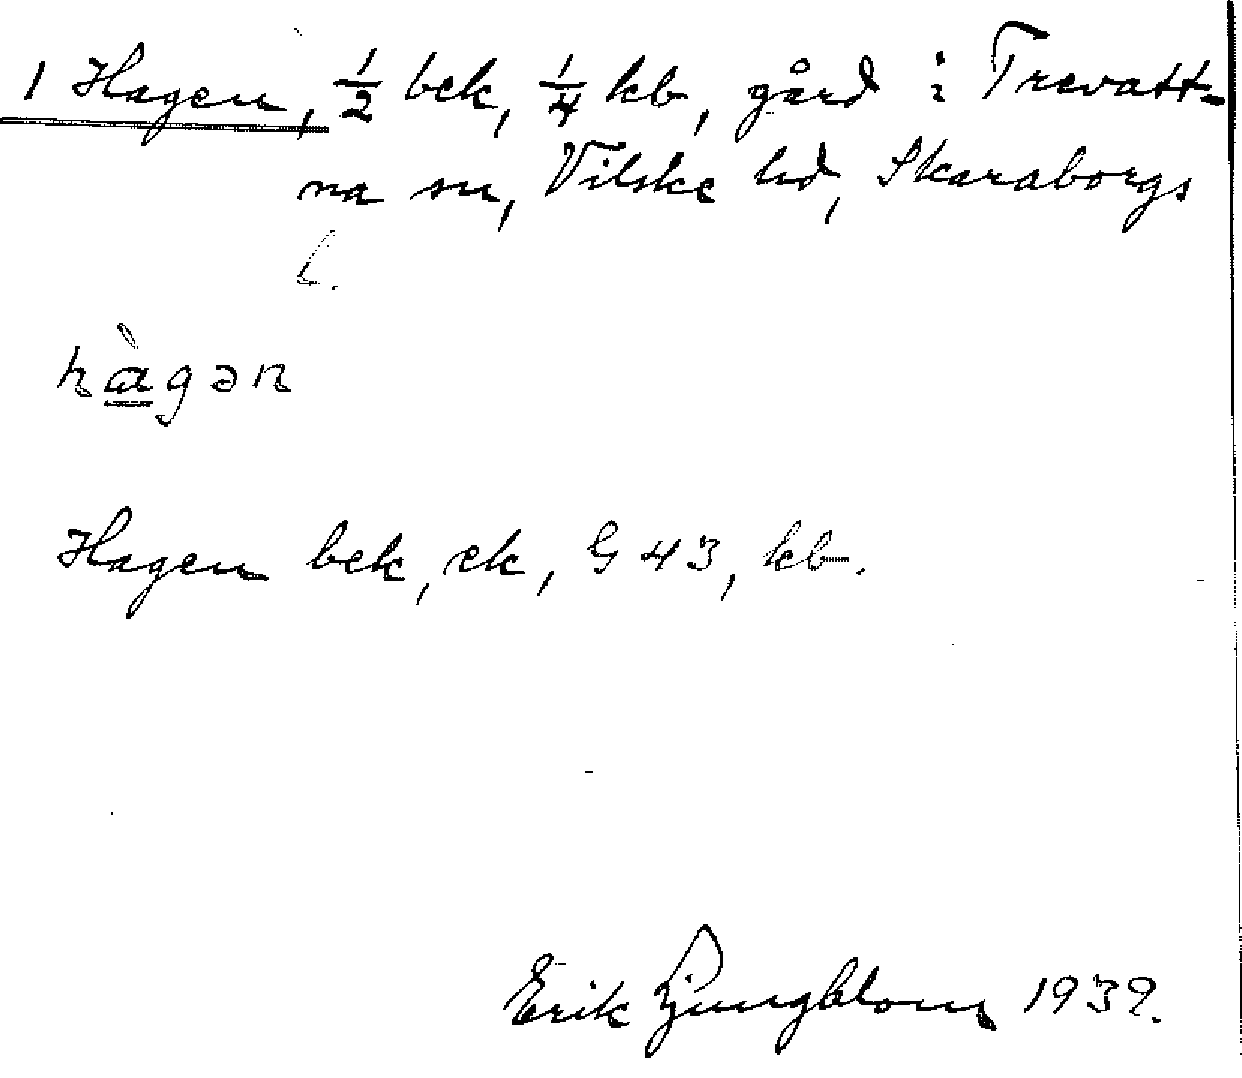 1 Hagen, 1/2 bek, 1/4 kb, gård i Trevatt-
na sn, Vilske hd, Skaraborgs
l.
hàgən
Hagen bek, ek, G 43, kb.
Erik Ljungblom 1939.